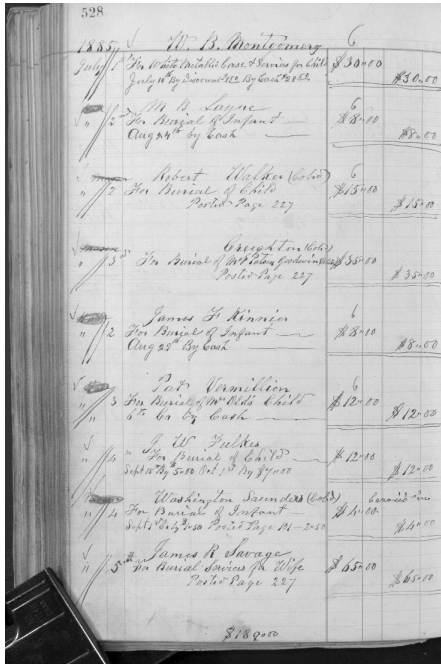 528
1885 W. B. Montgomery 6
July 1st For White Metallic Case & Services for Child $30.00
July 11th By Discount By Cash $30.00
M B Layne 6
" 2nd For Burial of Infant $8.00
Aug 24th by Cash $8.00
Robert Walker (Col'd) 6
" 2 For Burial of Child $15.00
Posted Page 227 $15.00
Creighton (Col'd)
" 3rd For Burial of Goodwin $35.00
Posted Page 227 $35.00
James F Kinnier 6
" 2 For Burial of Infant $8.00
Aug 25th By Cash $8.00
Pat Vermillion 6
" 3 For Burial of Mr Old's Child $12.00
6th Cr by Cash $12.00
J W Fulkes
" 4 " For Burial of Child $12.00
Sept 15th By 5.00 Oct 1st By $7.00 $12.00
Washington Saunders (Col'd) Carried in
" 4 For Burial of Infant $4.00
Sept 1st By 1.50 Posted Page 101-2.50 $4.00
James R Savage
" 5th For Burial Services for Wife $65.00
Posted Page 227 $65.00
$189.00